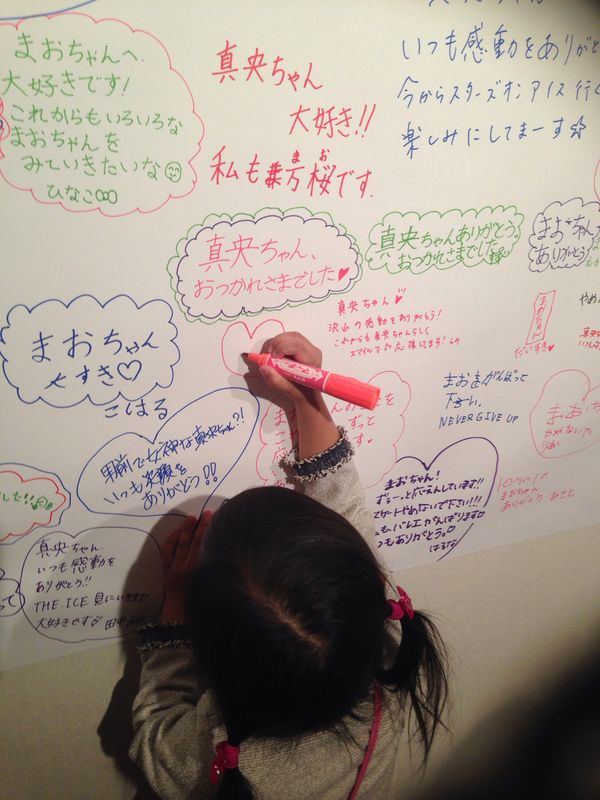 まおちゃんへ
大好きです!
これからもいろいろな
まおちゃんを
みていきたいな
ひなこ
真央ちゃん
大好き!!
まお
私も 万桜です.
いつも感動をありがと
今からスターズオンアイス行く
楽しみにしてまーす☆
真央ちゃん、
おつかれさまでした♥
真央ちゃんありがとう。
おつかれさまでした
まおちゃん
ありがとう
真央ちゃん
沢山の感動をありがとう!
これからも真央ちゃんらしく
スマイルで 応援してます!
まおちゃん
だいすき♥
まおちゃん
大すき♡
こはる
まおちゃんがんばって
下さい。
NEVER GIVE UP
いつも笑顔を
ありがとう!!
まおちゃん!
ずぅーっと応えんしています!!
スケートやめないで下さい!!!
バレエがんばります♡
いつもありがとう。♡
はるな
まおちゃん
ありがとう
真央ちゃん.
いつも感動を
ありがとう!!
THE ICE 見にいきます.
大好きです♡